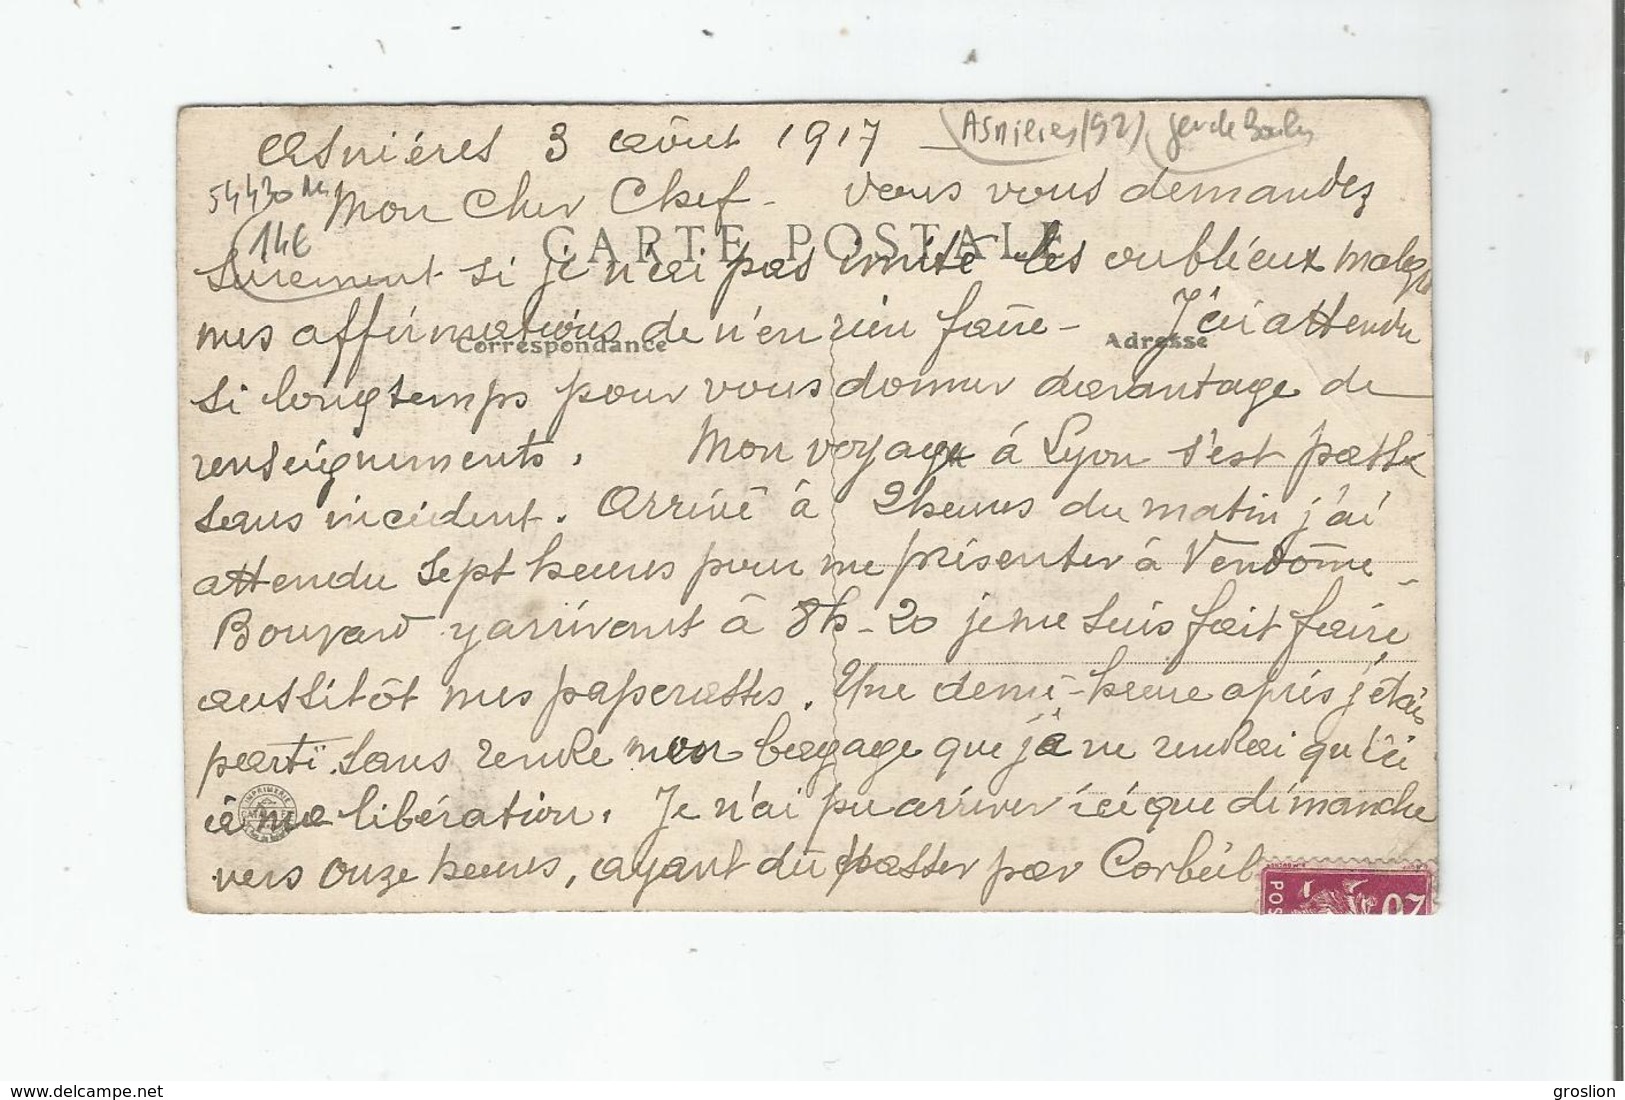 Asniéres 3 Août 1917
Asnières (92) jeu de Boules
54430
14€
Mon Cher Chef - Vous vous demandez
CARTE POSTALE
surement si je n'ai pas imité les oublieux malgré
mes affirmations de n'en rien faire - J'ai attendu
Correspondance
Adresse
si longtemps pour vous donner davantage de
renseignements. Mon voyage à Lyon s'est passé
sans incident. Arrivé à 2 heures du matin j'ai
attendu sept heures pour me présenter à Vendôme -
Bouvard y arrivant à 8h-20 je me suis fait faire
aussitôt mes paperasses. Une demi-heure après j'étais
parti sans rendre mon bagage que je ne rendrai qu'ici
à ma libération. Je n'ai pu arriver ici que dimanche
IMPRIMERIE
vers onze heures, ayant dû passer par Corbeil
POS
20
www.delcampe.net
groslion